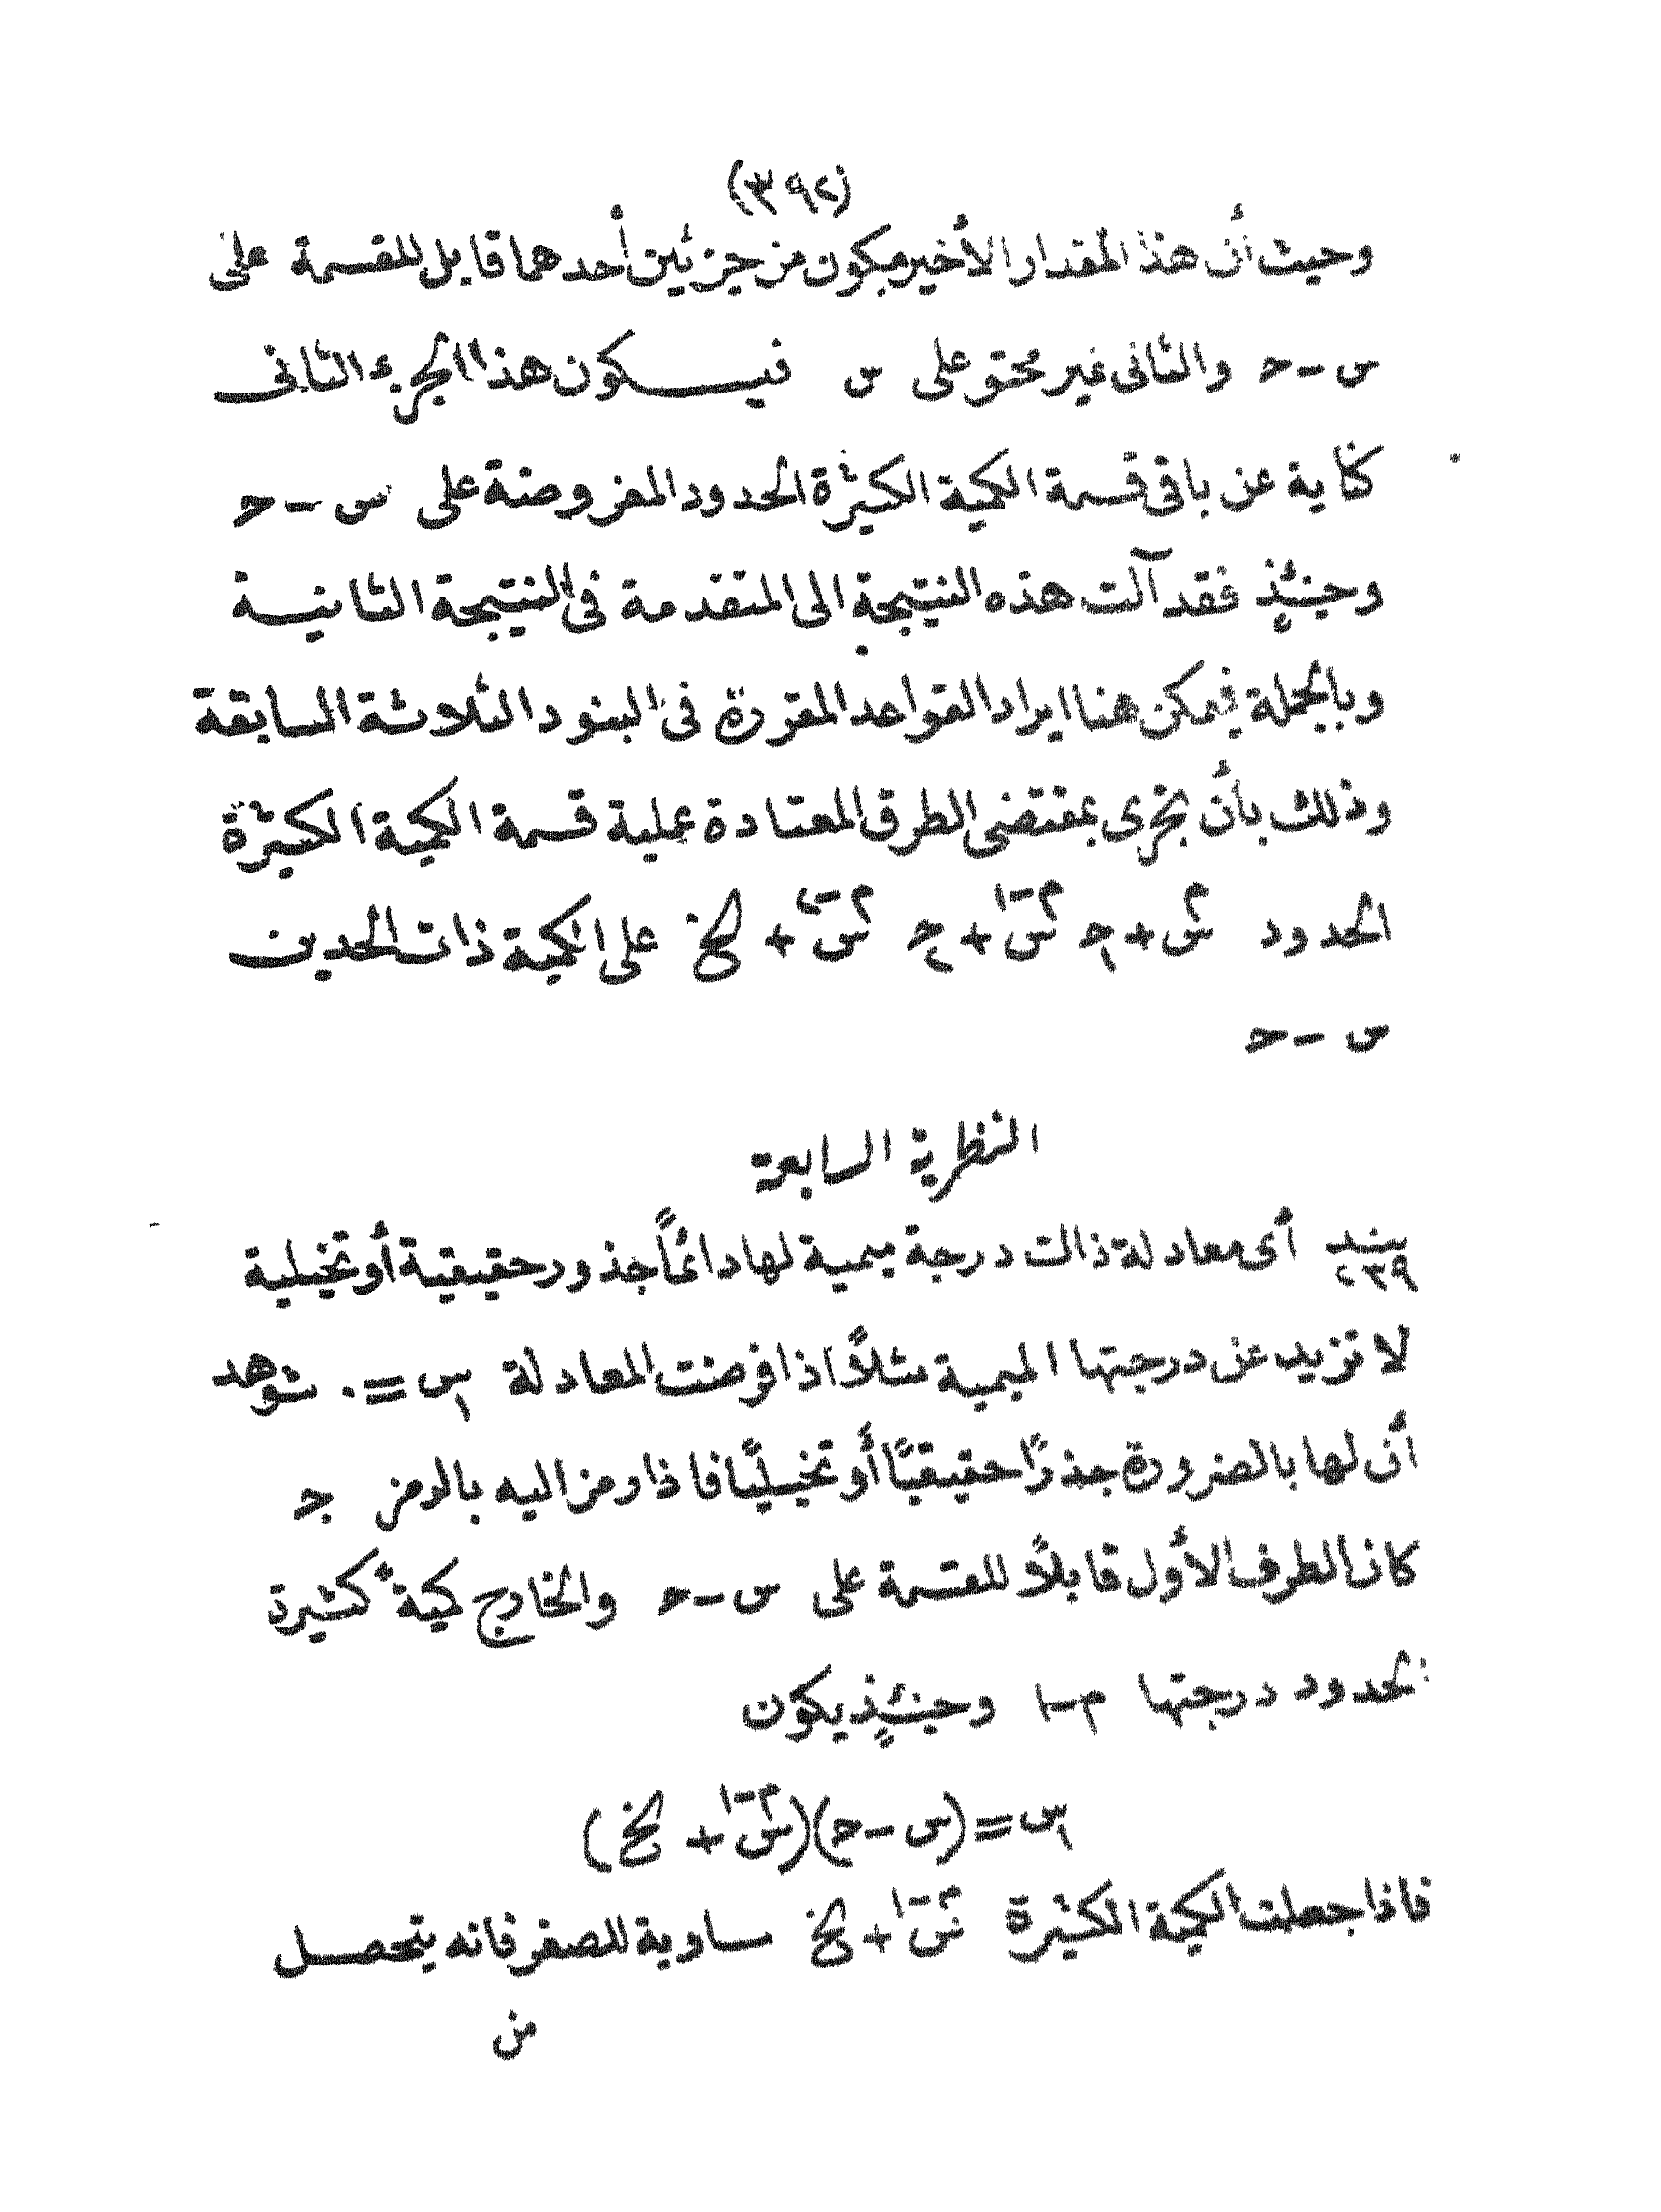 (٣٩٢)
وحيث أن هذا المقدار الأخير مكون من جزئين أحدهما قابل للقسمة على
س - حـ والثانى غير محتو على س فيــكون هذا الجزء الثانى
كناية عن باقى قسمة الكمية الكثيرة الحدود المفروضة على س - حـ
وحينئذٍ فقد آلت هذه النتيجة الى المتقدمة فى النتيجة الثانيــة
وبالجملة فيمكن هنا ايراد القواعد المقررة فى البنود الثلاثة السابقة
وذلك بأن تجرى بمقتضى الطرق المعتادة عملية قسمة الكمية الكثيرة
الحدود س^م + جـ١ س^(م-١) + جـ٢ س^(م-٢) + الخ على الكمية ذات الحدين
س - حـ
النظرية السابعة
بند ٢٣٩ أى معادلة ذات درجة ميمية لها دائماً جذور حقيقية أو تخيلية
لا تزيد عن درجتها الميمية مثلاً اذا فرضت المعادلة س١ = ٠ شوهد
أن لها بالضرورة جذرًا حقيقيًا أو تخيليًا فاذا رمز اليه بالرمز جـ
كان الطرف الأول قابلاً للقسمة على س - حـ والخارج كمية كثيرة
الحدود درجتها م - ١ وحينئذٍ يكون
س١ = (س - حـ)(س^(م-١) + الخ)
فاذا جعلت الكمية الكثيرة س^(م-١) + الخ مساوية للصفر فانه يتحصــل
من